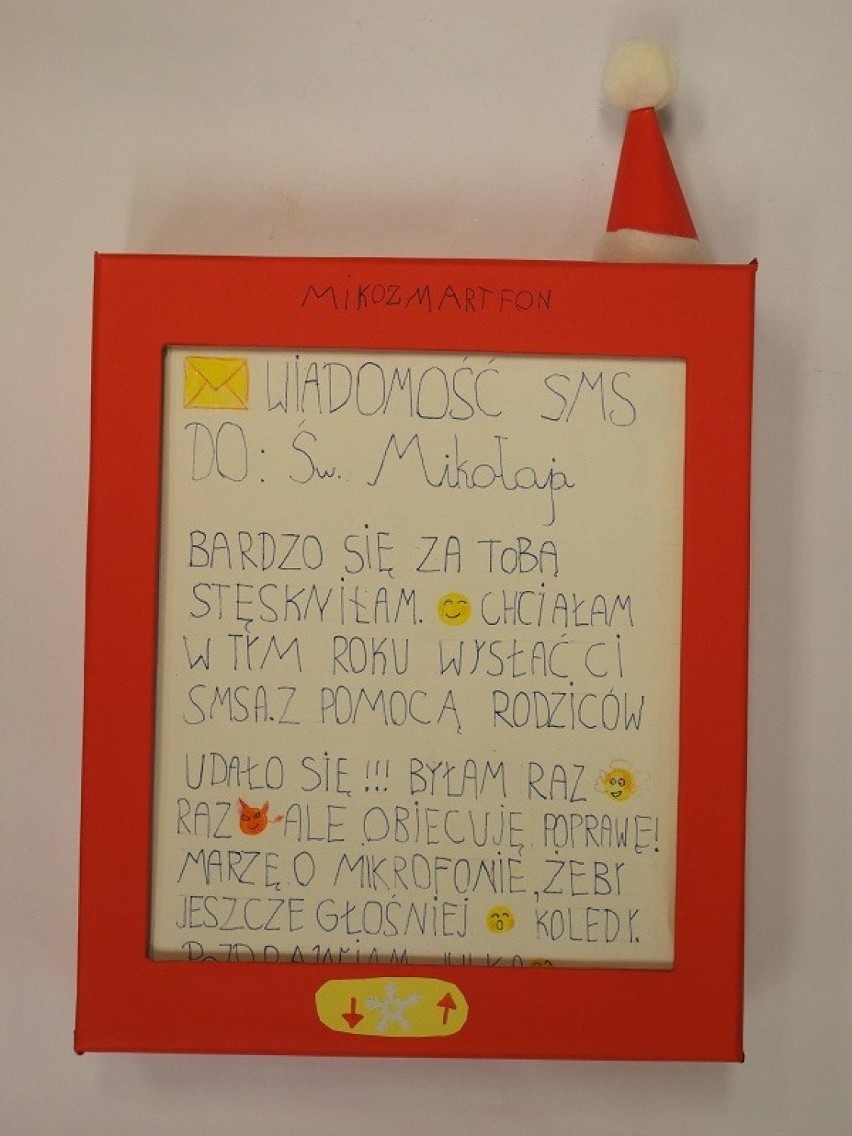 MIKOZMARTFON
WIADOMOŚĆ SMS
DO: Św. Mikołaja
BARDZO SIĘ ZA TOBĄ
STĘSKNIŁAM. CHCIAŁAM
W TYM ROKU WYSŁAĆ CI
SMSA.Z POMOCĄ RODZICÓW
UDAŁO SIĘ!!! BYŁAM RAZ
RAZ ALE OBIECUJĘ POPRAWĘ!
MARZĘ O MIKROFONIE, ŻEBY
JESZCZE GŁOŚNIEJ KOLĘDY.
POZDRAWIAM JULKA